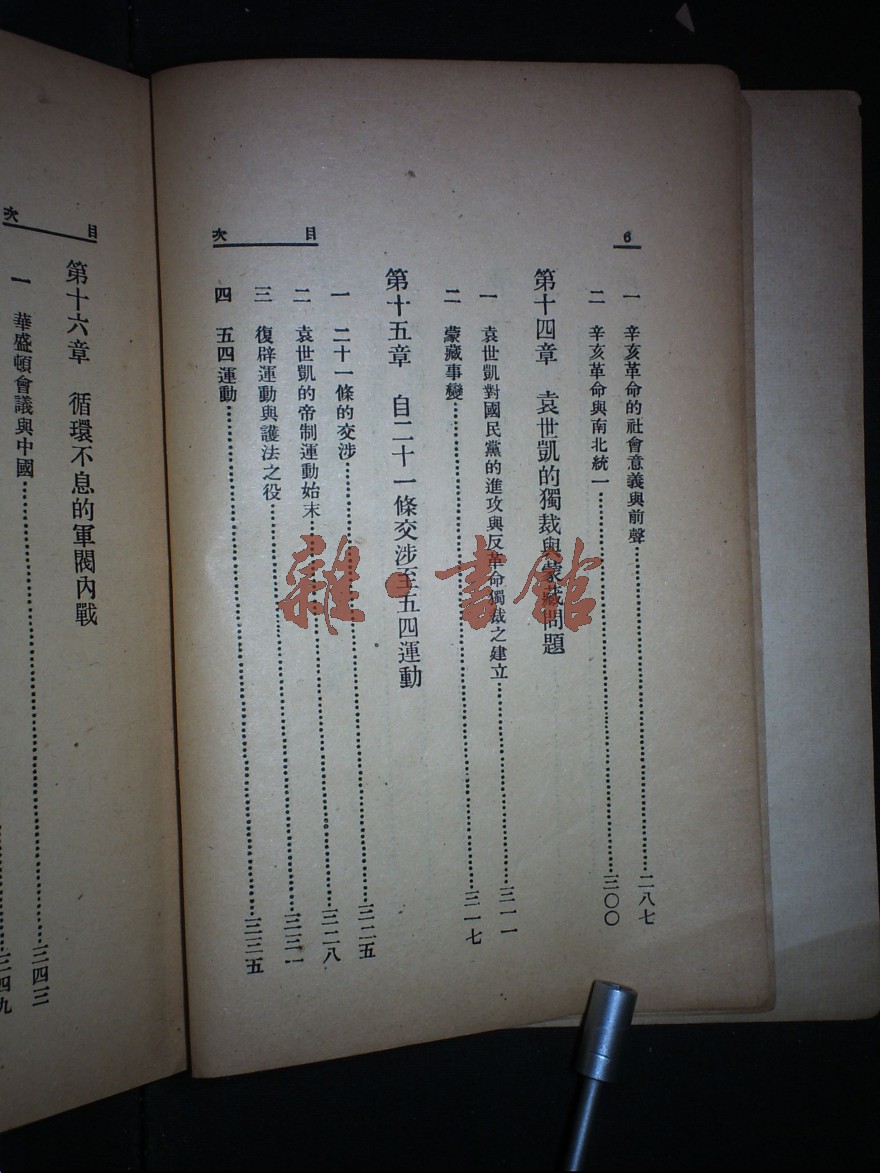 6
目次
一　辛亥革命的社會意義與前聲……二八七
二　辛亥革命與南北統一……三〇〇
第十四章　袁世凱的獨裁與蒙藏問題
一　袁世凱對國民黨的進攻與反革命獨裁之建立……三一一
二　蒙藏事變……三一七
第十五章　自二十一條交涉至五四運動
一　二十一條的交涉……三二五
二　袁世凱的帝制運動始末……三二八
三　復辟運動與護法之役……三三一
四　五四運動……三三五
目次
第十六章　循環不息的軍閥內戰
一　華盛頓會議與中國……三四三
三四九
雜·書館